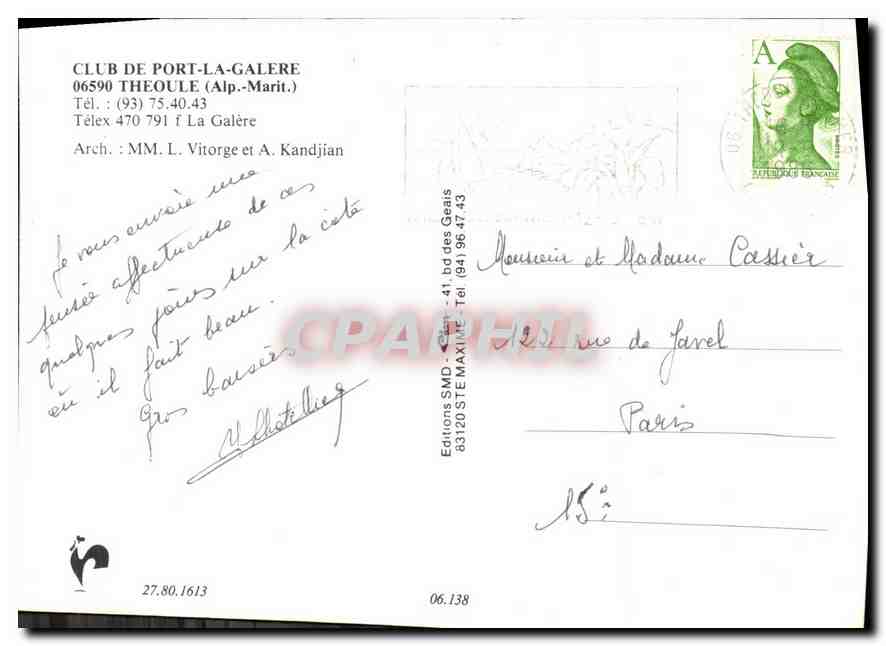 CLUB DE PORT-LA-GALERE
06590 THEOULE (Alp.-Marit.)
Tél. : (93) 75.40.43
Télex 470 791 f La Galère
Arch. : MM. L. Vitorge et A. Kandjian
Je vous envoie une
pensée affectueuse de ces
quelques jours sur la côte
où il fait beau.
Gros baisers
27.80.1613
06.138
Editions SMD - - 41, bd des Geais
83120 STE MAXIME - Tél. (94) 96.47.43
A
REPUBLIQUE FRANÇAISE
Monsieur et Madame Cassier
122 rue de Javel
Paris
15è
CPAPHIL